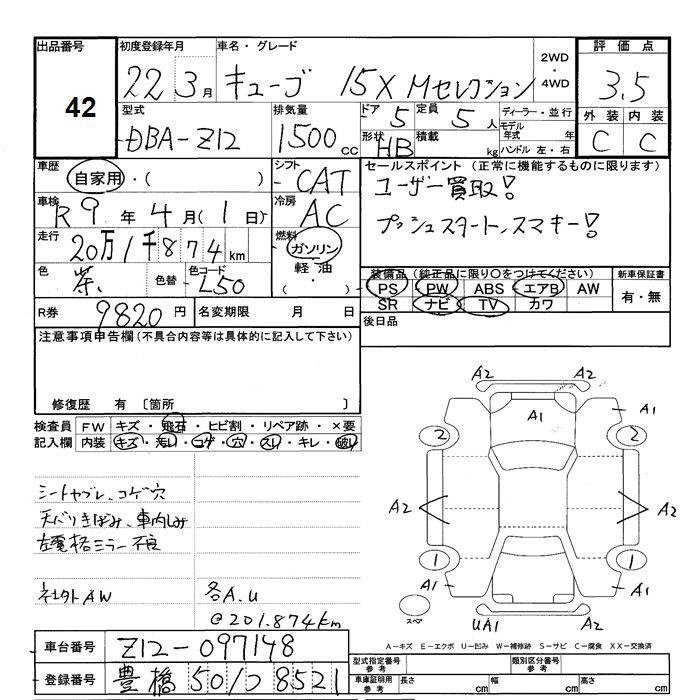 出品番号 初度登録年月 車名・グレード 2WD ・ 4WD 評価点
42 22 3月 キューブ 15X Mセレクション 3.5
型式 排気量 ドア 5 定員 5人 ディーラー・並行 外装 内装
DBA-Z12 1500cc 形状 HB 積載 kg モデル年式 年 ハンドル 左・右 C C
車歴 自家用・( ) シフト CAT セールスポイント (正常に機能するものに限ります)
車検 R9年4月(1日) 冷房 AC ユーザー買取!
走行 20万1千874km 燃料 ガソリン プッシュスタート、スマキー!
軽油・( )
色 茶 色替 色コード L50 装備品 (純正品に限り○をつけてください) 新車保証書
PS PW ABS エアB AW 有・無
SR ナビ TV カワ
R券 9820円 名変期限 月 日 後日品
注意事項申告欄(不具合内容等は具体的に記入して下さい)
修復歴 有 〔箇所 〕
検査員 FW キズ・飛石・ヒビ割・リペア跡・×要
記入欄 内装 キズ・汚レ・コゲ・穴・スレ・キレ・破レ
シートヤブレ、コゲ穴
天バリきばみ、車内しみ
左電格ミラー不良
社外AW 各A.U
@201.874km
A2 A2
A1 A1
2 2
A2 A2
1 1
A1 A1
スペア UA1 A2
A-キズ E-エクボ U-凹み W-補修跡 S-サビ C-腐食 XX-交換済
車台番号 Z12-097148 型式指定番号 参考 類別区分番号 参考
登録番号 豊橋 501 つ 8521 車庫証明用 参考 長さ cm 幅 cm 高さ cm